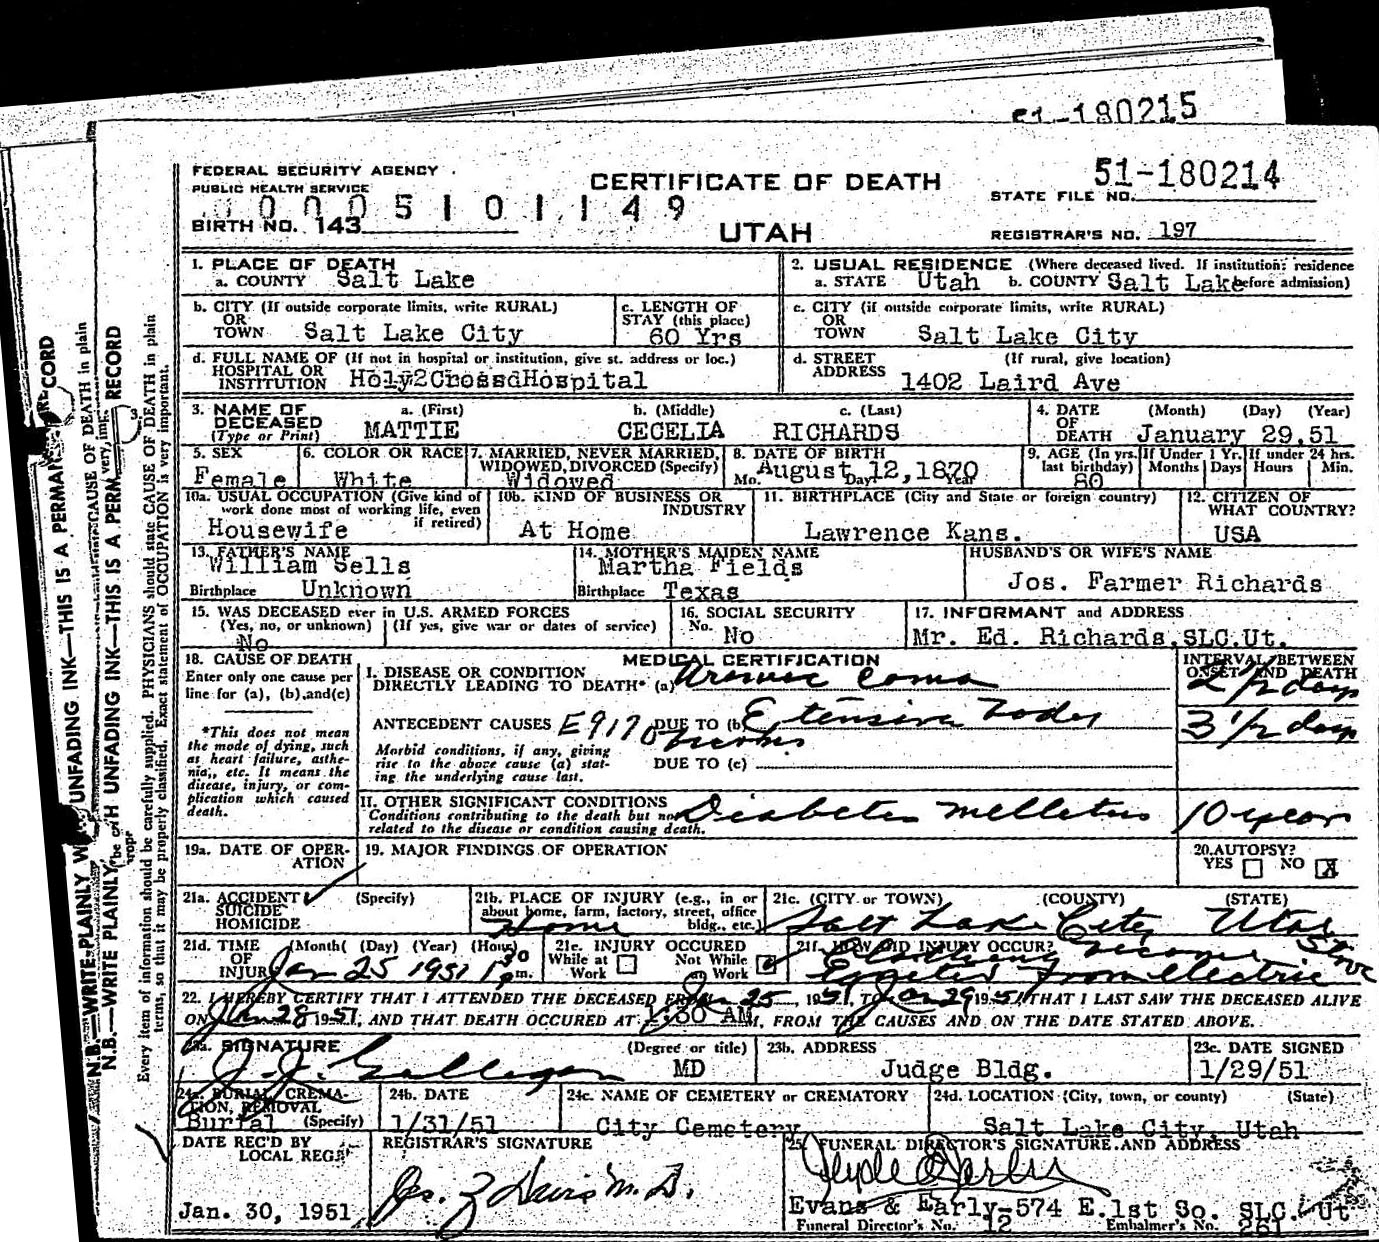 51-180215
FEDERAL SECURITY AGENCY
PUBLIC HEALTH SERVICE
CERTIFICATE OF DEATH
51-180214
STATE FILE NO.
0 0 0 5 1 0 1 1 4 9
BIRTH NO. 143
UTAH
REGISTRAR'S NO. 197
1. PLACE OF DEATH
a. COUNTY Salt Lake
2. USUAL RESIDENCE (Where deceased lived. If institution: residence
a. STATE Utah b. COUNTY Salt Lake before admission)
b. CITY (If outside corporate limits, write RURAL)
OR
TOWN Salt Lake City
c. LENGTH OF
STAY (this place)
60 Yrs
c. CITY (if outside corporate limits, write RURAL)
OR
TOWN Salt Lake City
d. FULL NAME OF (If not in hospital or institution, give st. address or loc.)
HOSPITAL OR
INSTITUTION Holy2CrossdHospital
d. STREET (If rural, give location)
ADDRESS 1402 Laird Ave
3. NAME OF
DECEASED
(Type or Print)
a. (First) b. (Middle) c. (Last)
MATTIE CECELIA RICHARDS
4. DATE (Month) (Day) (Year)
OF
DEATH January 29,51
5. SEX
Female
6. COLOR OR RACE
White
7. MARRIED, NEVER MARRIED,
WIDOWED, DIVORCED (Specify)
Widowed
8. DATE OF BIRTH
Mo. August Day 12,1870 Year
9. AGE (In yrs. last birthday)
80
If Under 1 Yr.
Months Days
If under 24 hrs.
Hours Min.
10a. USUAL OCCUPATION (Give kind of
work done most of working life, even
if retired)
Housewife
10b. KIND OF BUSINESS OR
INDUSTRY
At Home
11. BIRTHPLACE (City and State or foreign country)
Lawrence Kans.
12. CITIZEN OF
WHAT COUNTRY?
USA
13. FATHER'S NAME
William Sells
Birthplace Unknown
14. MOTHER'S MAIDEN NAME
Martha Fields
Birthplace Texas
HUSBAND'S OR WIFE'S NAME
Jos. Farmer Richards
15. WAS DECEASED ever in U.S. ARMED FORCES
(Yes, no, or unknown) (If yes, give war or dates of service)
No
16. SOCIAL SECURITY
No. No
17. INFORMANT and ADDRESS
Mr. Ed. Richards,SLC.Ut.
18. CAUSE OF DEATH
Enter only one cause per
line for (a), (b), and (c)
*This does not mean
the mode of dying, such
as heart failure, asthe-
nia, etc. It means the
disease, injury, or com-
plication which caused
death.
MEDICAL CERTIFICATION
I. DISEASE OR CONDITION
DIRECTLY LEADING TO DEATH* (a) Uremic Coma
INTERVAL BETWEEN
ONSET AND DEATH
2 1/2 days
ANTECEDENT CAUSES E9170 DUE TO (b) Extensive body
burns
3 1/2 days
Morbid conditions, if any, giving
rise to the above cause (a) stat-
ing the underlying cause last.
DUE TO (c)
II. OTHER SIGNIFICANT CONDITIONS
Conditions contributing to the death but not
related to the disease or condition causing death.
Diabetes Melletus 10 years
19a. DATE OF OPER-
ATION
19. MAJOR FINDINGS OF OPERATION
20. AUTOPSY?
YES NO X
21a. ACCIDENT (Specify)
SUICIDE
HOMICIDE
21b. PLACE OF INJURY (e.g., in or
about home, farm, factory, street, office
bldg., etc.)
Home
21c. (CITY or TOWN) (COUNTY) (STATE)
Salt Lake City Utah
21d. TIME (Month) (Day) (Year) (Hour)
OF
INJURY Jan 25 1951 1 30 pm.
21e. INJURY OCCURED
While at Work
Not While on Work
21f. HOW DID INJURY OCCUR?
Clothing become
Ignited from electric
stove
22. I HEREBY CERTIFY THAT I ATTENDED THE DECEASED FROM Jan 25, 1951, TO Jan 29 1951, THAT I LAST SAW THE DECEASED ALIVE
ON Jan 28 1951, AND THAT DEATH OCCURED AT 1:30 AM, FROM THE CAUSES AND ON THE DATE STATED ABOVE.
23a. SIGNATURE (Degree or title)
J. J. Galligan MD
23b. ADDRESS
Judge Bldg.
23c. DATE SIGNED
1/29/51
24a. BURIAL, CREMA-
TION, REMOVAL
(Specify)
Burial
24b. DATE
1/31/51
24c. NAME OF CEMETERY or CREMATORY
City Cemetery
24d. LOCATION (City, town, or county) (State)
Salt Lake City, Utah
DATE REC'D BY
LOCAL REG.
Jan. 30, 1951
REGISTRAR'S SIGNATURE
25. FUNERAL DIRECTOR'S SIGNATURE AND ADDRESS
Evans & Early-574 E.1st So. SLC. Ut
Funeral Director's No. 12 Embalmer's No. 261
N.B.—WRITE PLAINLY WITH UNFADING INK—THIS IS A PERMANENT RECORD
Every item of information should be carefully supplied. PHYSICIANS should state CAUSE OF DEATH in plain
terms, so that it may be properly classified. Exact statement of OCCUPATION is very important.